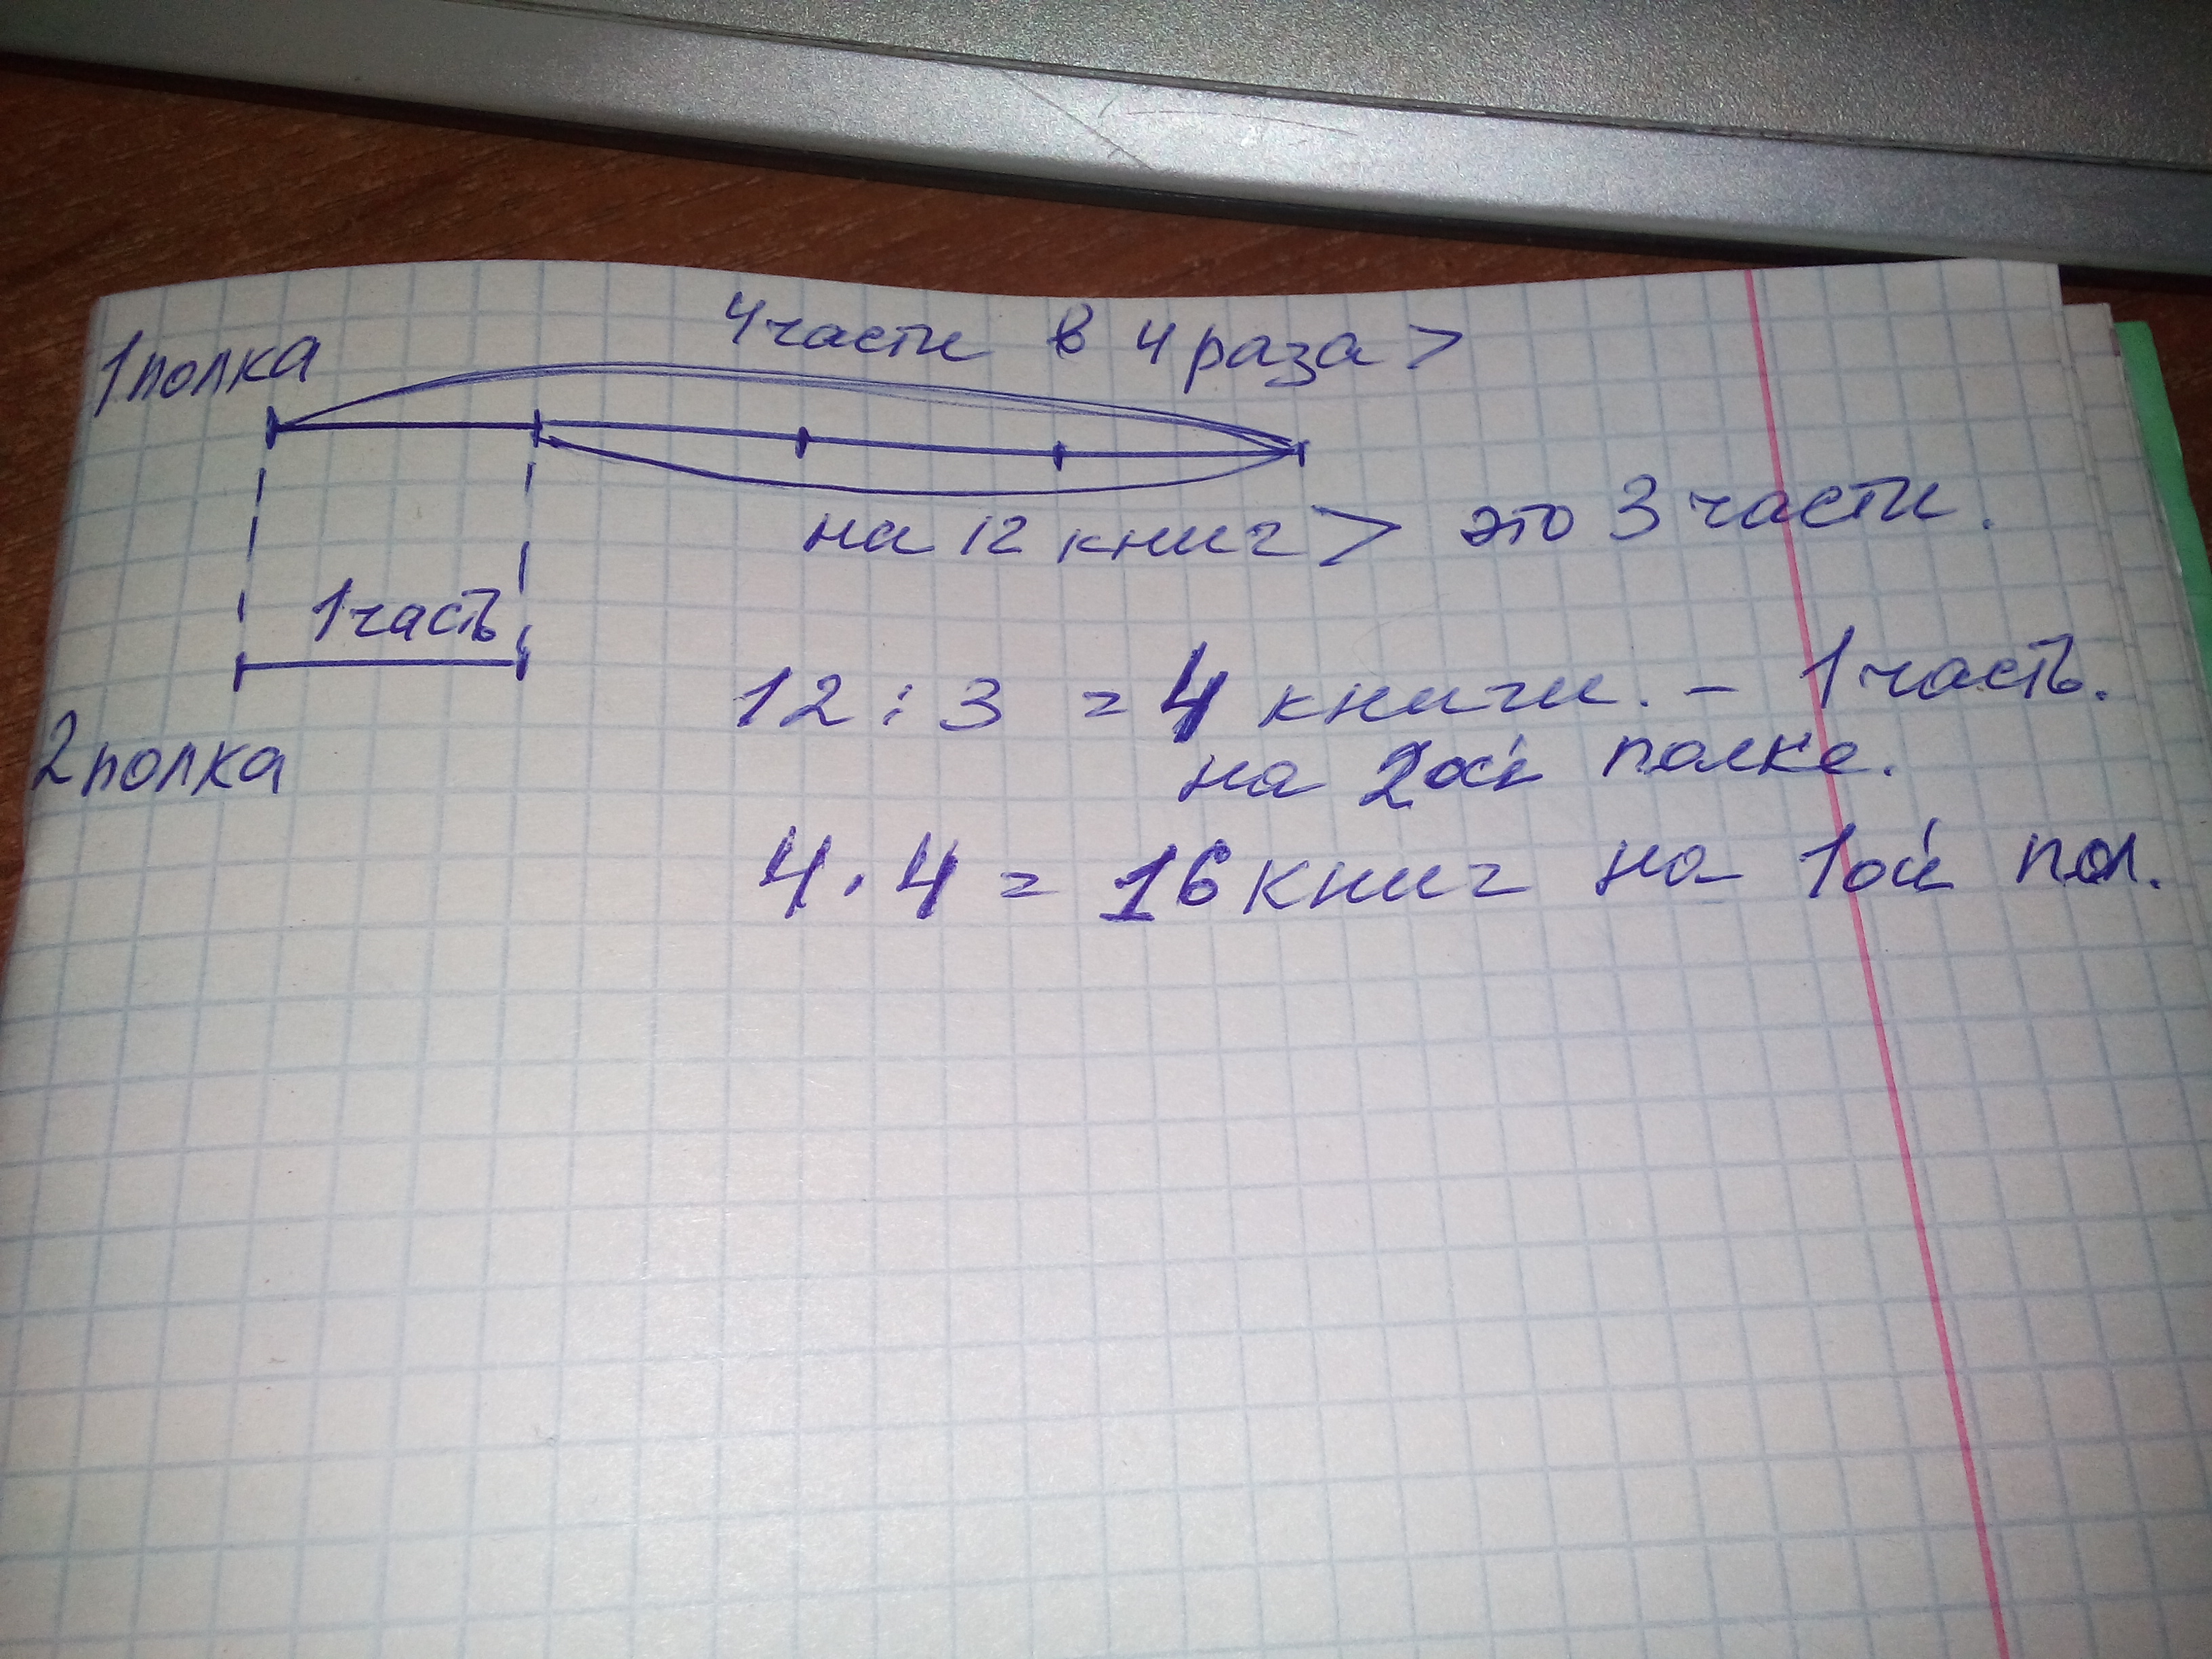 4 части в 4 раза >
1 полка
на 12 книг > это 3 части.
1 часть
12 : 3 = 4 книги. - 1 часть.
2 полка
на 2ой полке.
4 . 4 = 16 книг на 1ой пол.